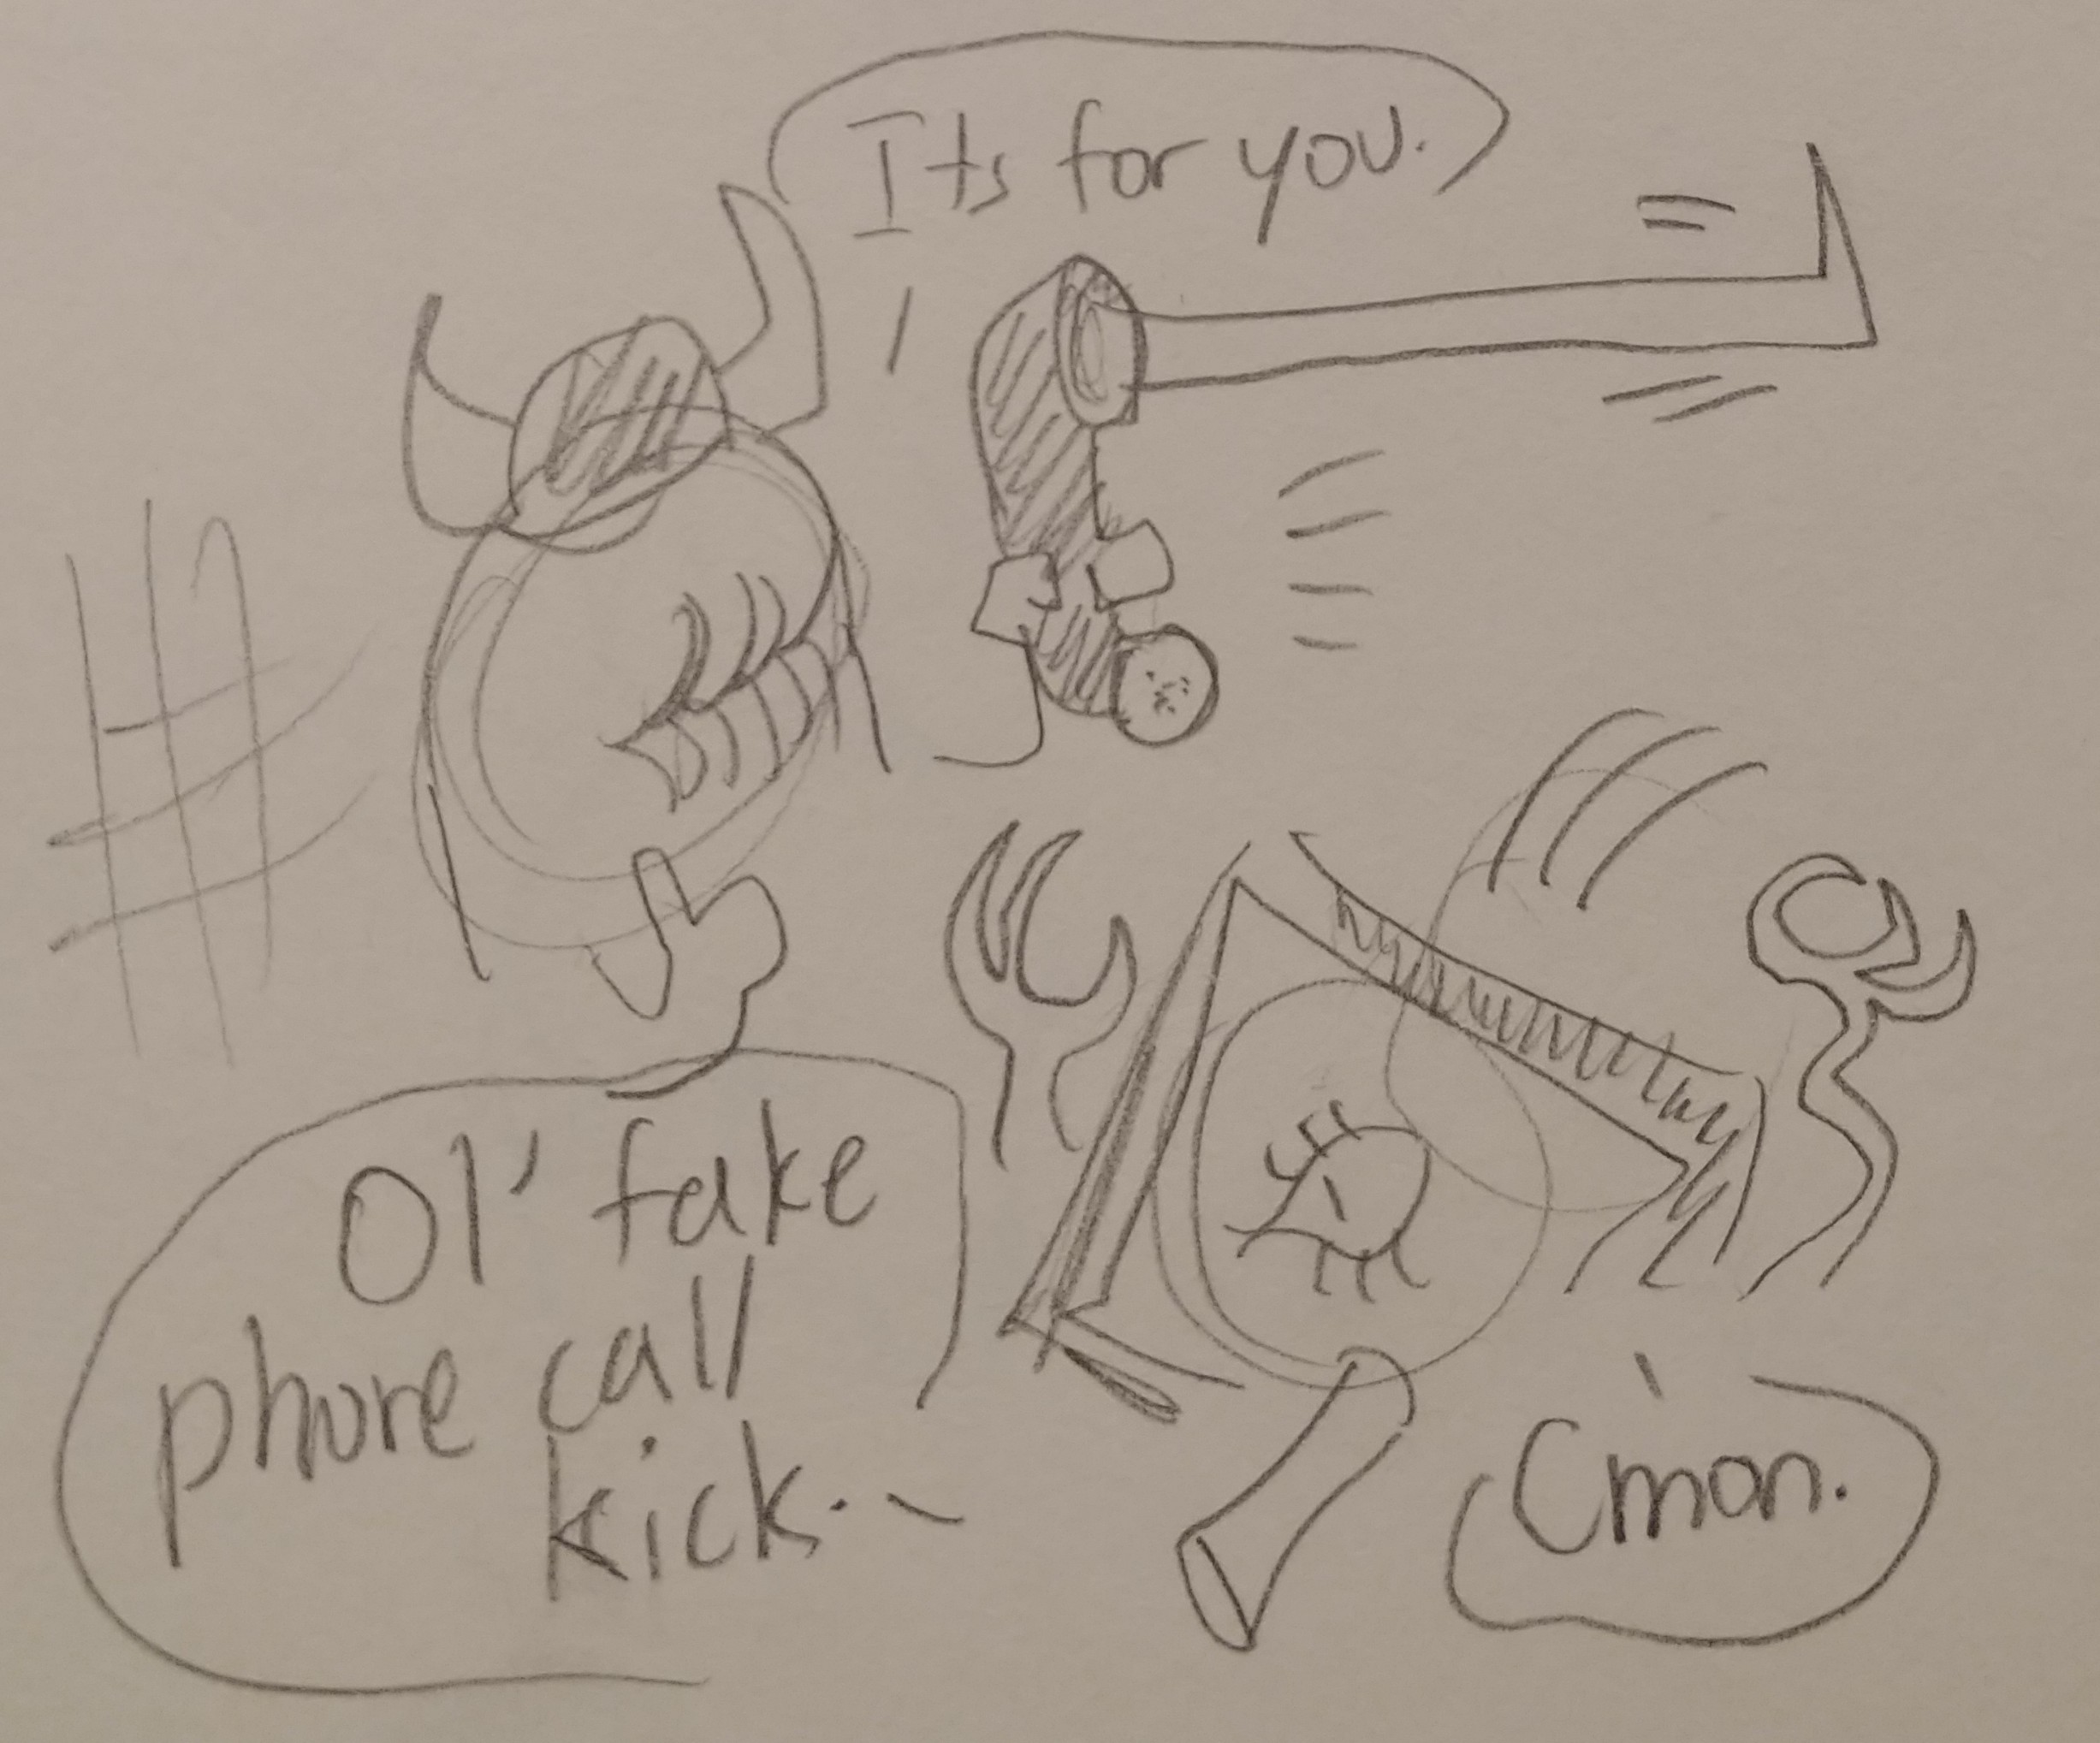 Its for you.
Ol' fake
phone call
kick..
C'mon.